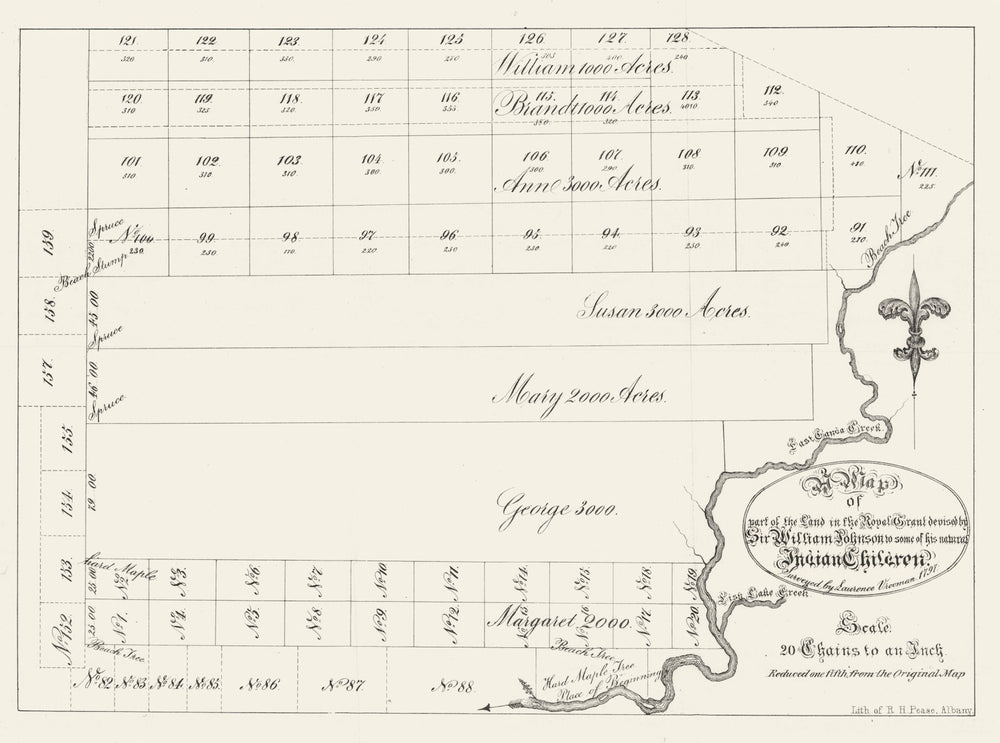 121. 122. 123. 124 125. 126. 127. 128.
320 310. 350. 290 270 305 400 240
William 1000 Acres.
120. 119. 118. 117 116. 115. 114. 113. 112.
310 325 320. 350 355. 380. 320 340
Brandt 1000 Acres.
101 102. 103. 104. 105. 106. 107. 108 109 110. No. 111.
310. 310 310. 300. 300. 300. 290 310. 310 225
Ann 3000 Acres.
Spruce
No. 100 99. 98. 97. 96. 95. 94. 93. 92. 91
230. 250. 220 250. 250 220 250. 240 210.
Beach Tree
159
2200
Beach Stump
158.
45 00
Susan 3000 Acres.
Spruce
157.
46 00
Mary 2000 Acres.
Spruce
East Canda Creek.
155.
154.
79 00
George 3000.
A Map
of
part of the Land in the Royal Grant devised by
Sir William Johnson to some of his natural
Indian Children.
Surveyed by Laurence Vrooman 1797.
153
25.00
Hard Maple
No. 2. No. 3. No. 6 No. 7 No. 10 No. 11. No. 14. No. 15. No. 18 No. 19
Fish Lake Creek
No. 152
25 00
No. 1. No. 4. No. 5. No. 8 No. 9. No. 12. No. 17. No. 20.
Margaret 2000.
Beach Tree
Beach Tree
Hard Maple Tree
Place of Beginning
No. 82 No. 83. No. 84. No. 85. No. 86. No. 87. No. 88.
Scale.
20 Chains to an Inch.
Reduced one fifth from the Original Map
Lith of R. H. Pease, Albany.